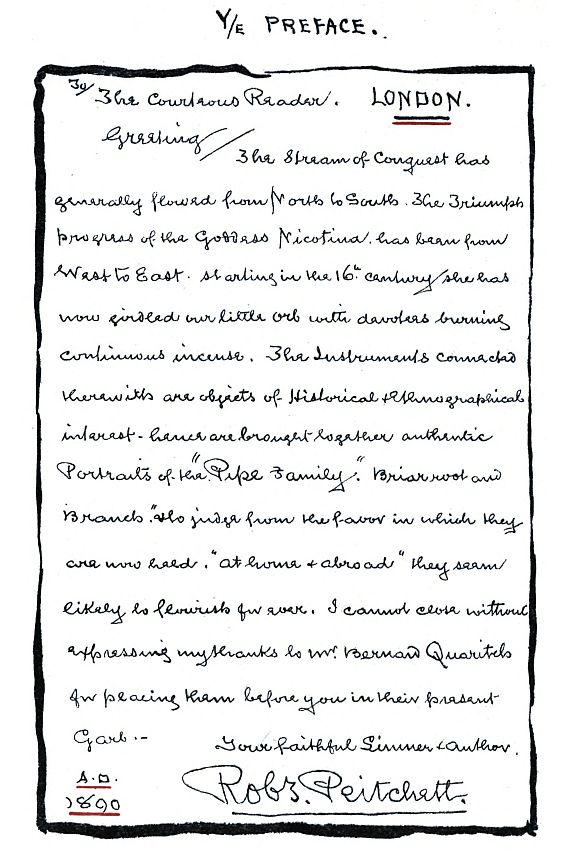 Y/E PREFACE.
To/ The Courteous Reader. LONDON.
Greeting/ The Stream of Conquest has
generally flowed from North to South. The Triumph
progress of the Goddess Nicotina. has been from
West to East. starting in the 16th century/she has
now girdled our little orb with devotees burning
continuous incense. The Instruments connected
therewith are objects of Historical & Ethnographical
interest - hence are brought together authentic
Portraits of the "Pipe Family". Briar root and
Branch." & to judge from the favor in which they
are now held. "at home & abroad" they seem
likely to flourish for ever. I cannot close without
expressing my thanks to Mr. Bernard Quaritch
for placing them before you in their present
Garb.- Your faithful Limner & author.
A.D. 1890